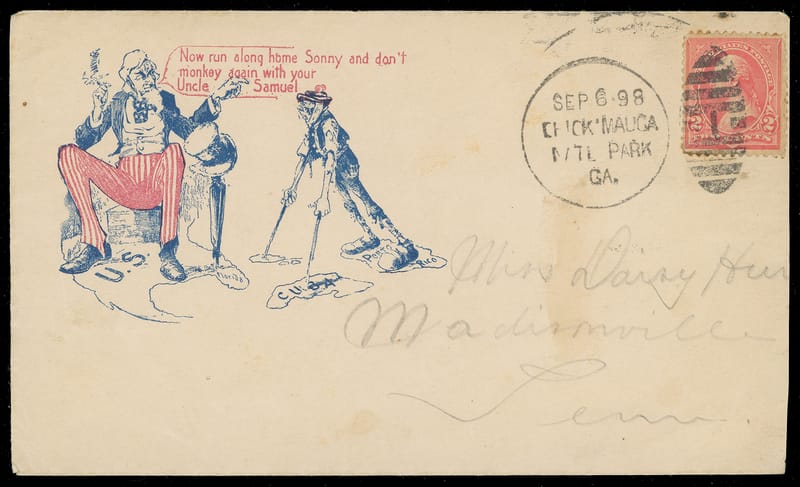 Now run along home Sonny and don't
monkey again with your
Uncle Samuel
U.S
CUBA
Porto Rico
SEP 6 98
CHICK'MAUGA
NTL PARK
GA.
2 2
Miss Daisy
Madisonville
Tenn